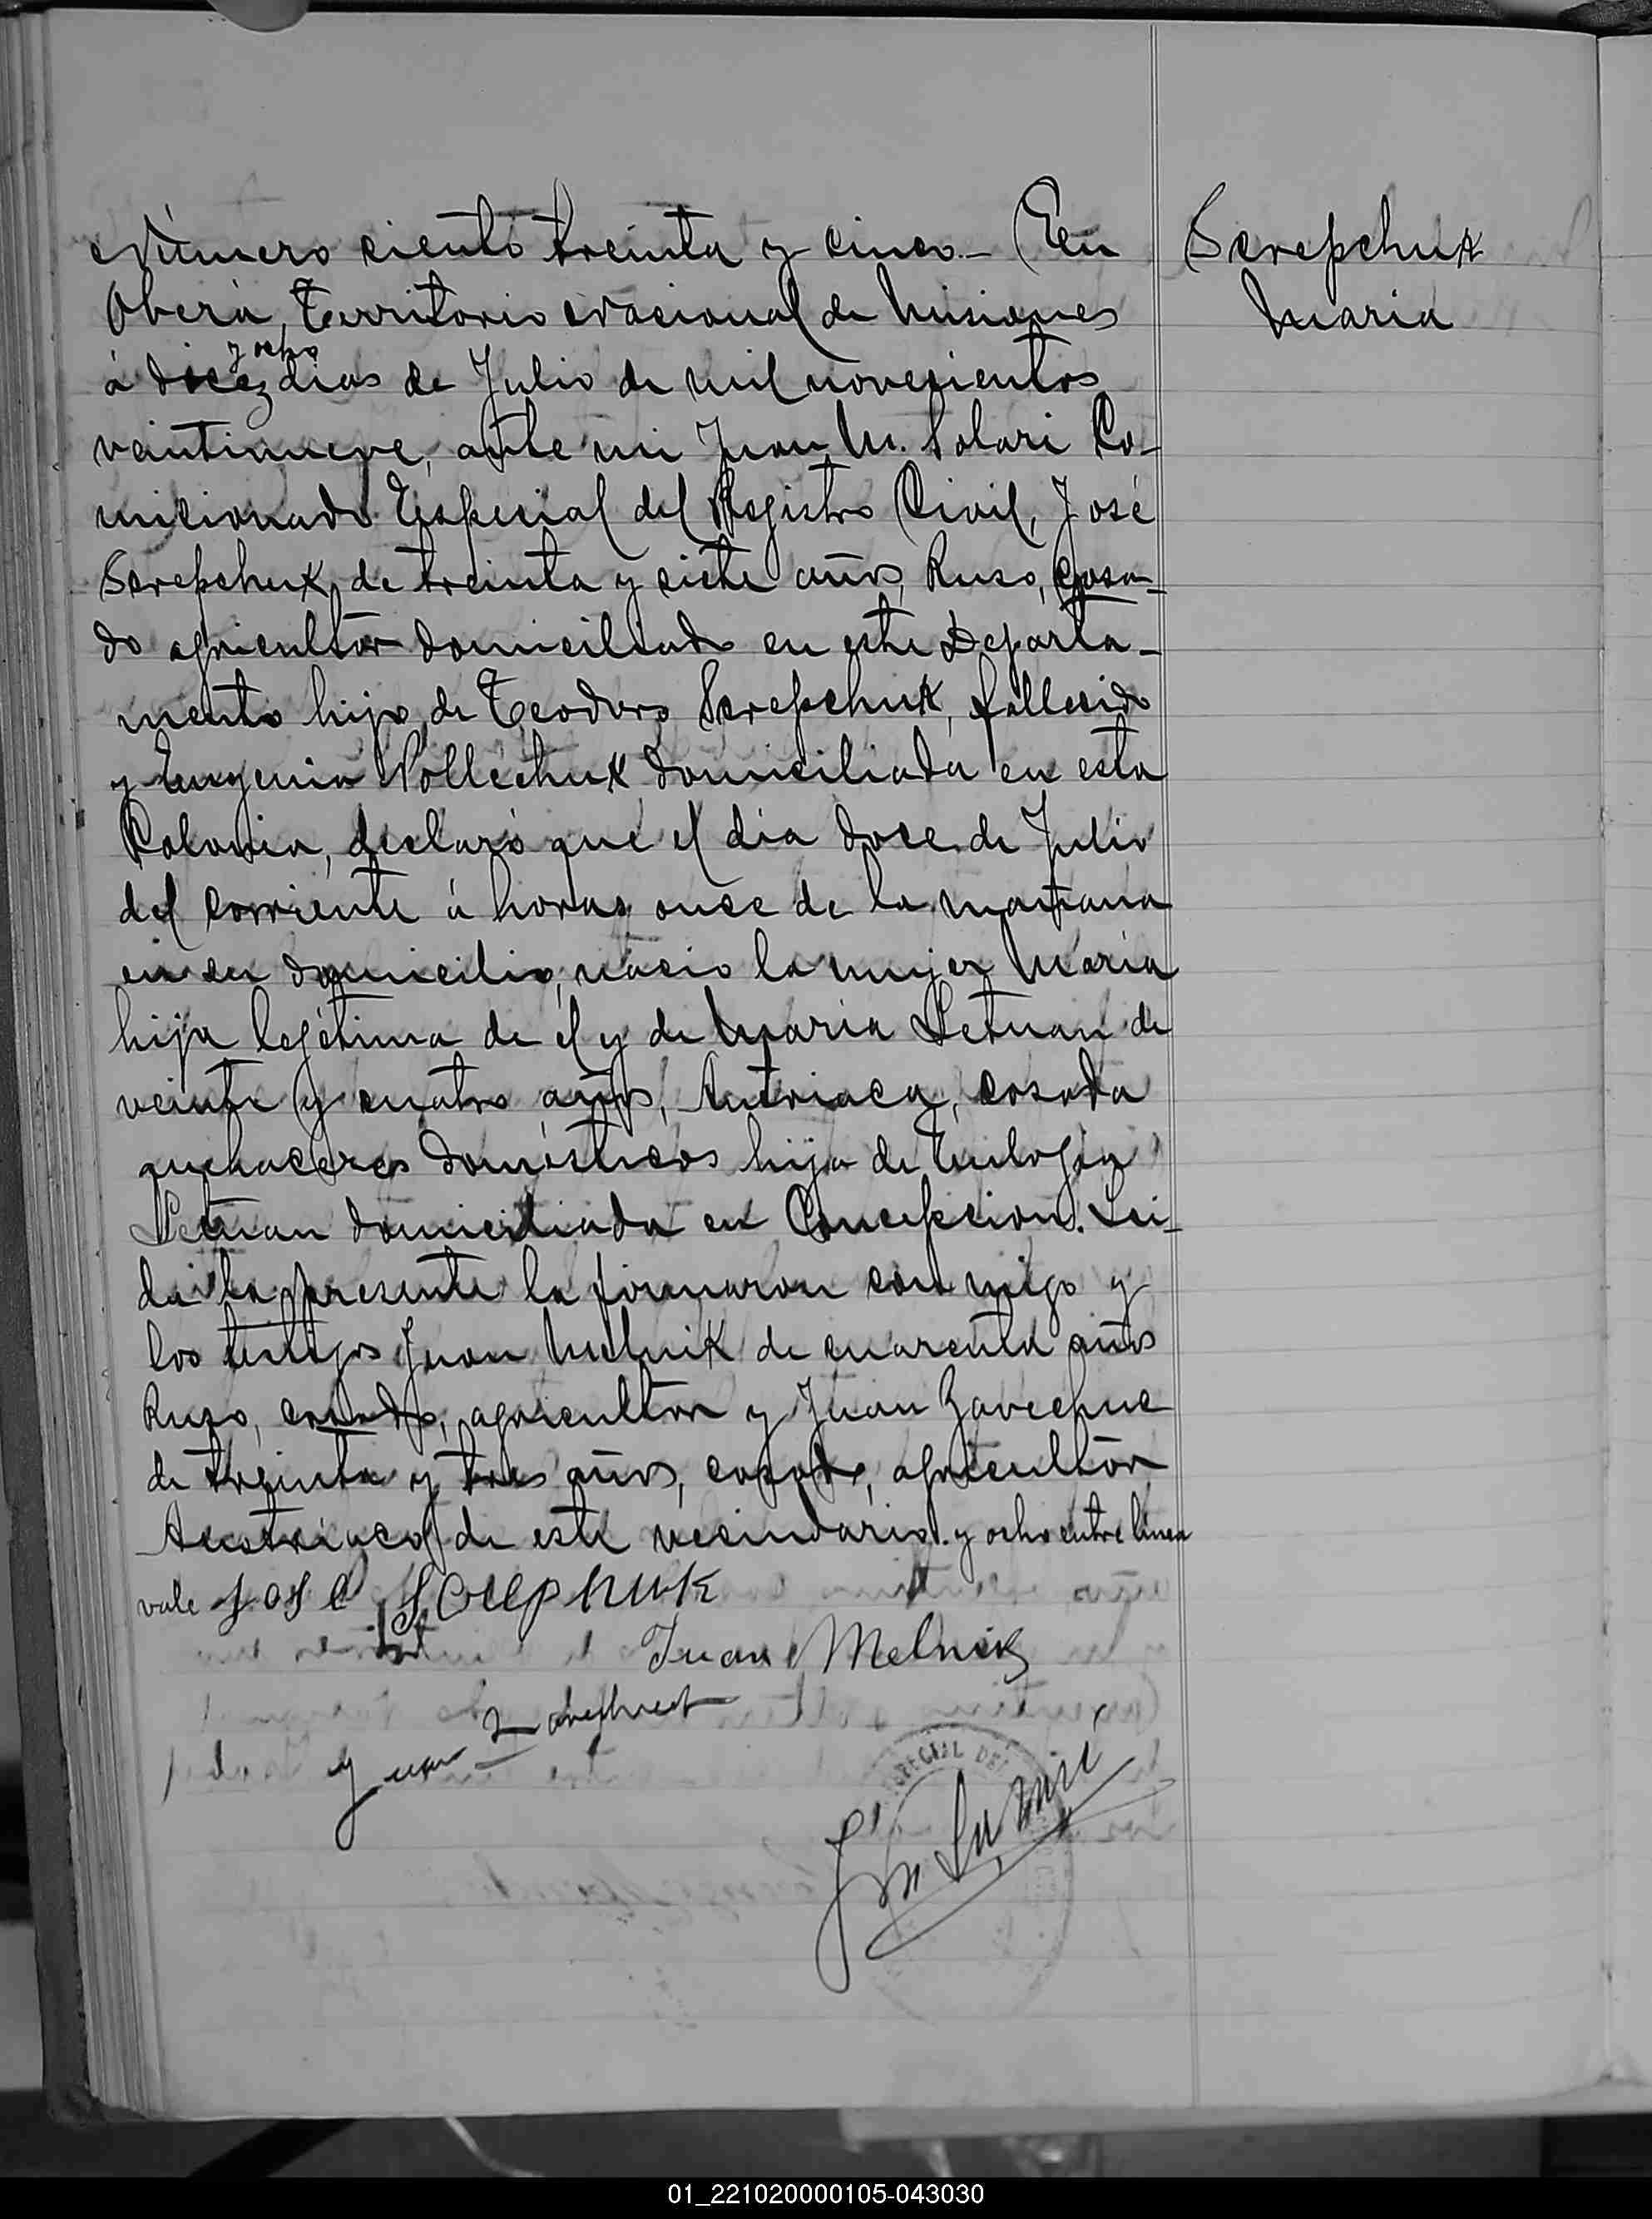 Número ciento treinta y cinco.- En
Oberá, Territorio Nacional de Misiones
y ocho
á diez dias de Julio de mil novecientos
veintinueve, ante mi Juan M. Solari Co-
micionado Especial del Registro Civil, José
Screpchuk, de treinta y siete años, Ruso, casa-
do agricultor domiciliado en este Departa-
mento hijo de Teodoro Screpchuk, fallecido
y Eugenia Pollechuk domiciliada en esta
Colonia, declaró que el dia doce de Julio
del corriente á horas once de la mañana
en su domicilio, nacio la mujer Maria
hija legitima de él y de Maria Letuan de
veinte y cuatro años, Autriaca, casada
quehaceres domésticos hija de Eulogia
Letuan domiciliada en Concepcion. Lei-
da la presente la firmaron con migo y
los testigos Juan Melnik de cuarenta años
Ruso, casado, agricultor y Juan Zavechuc
de treinta y tres años, casado, agricultor
Austriaco de este vecindario. y ocho entre linea
vale José
Juan Melnik
Juan
ESPECIAL DEL
Screpchuk
Maria
01_221020000105-043030